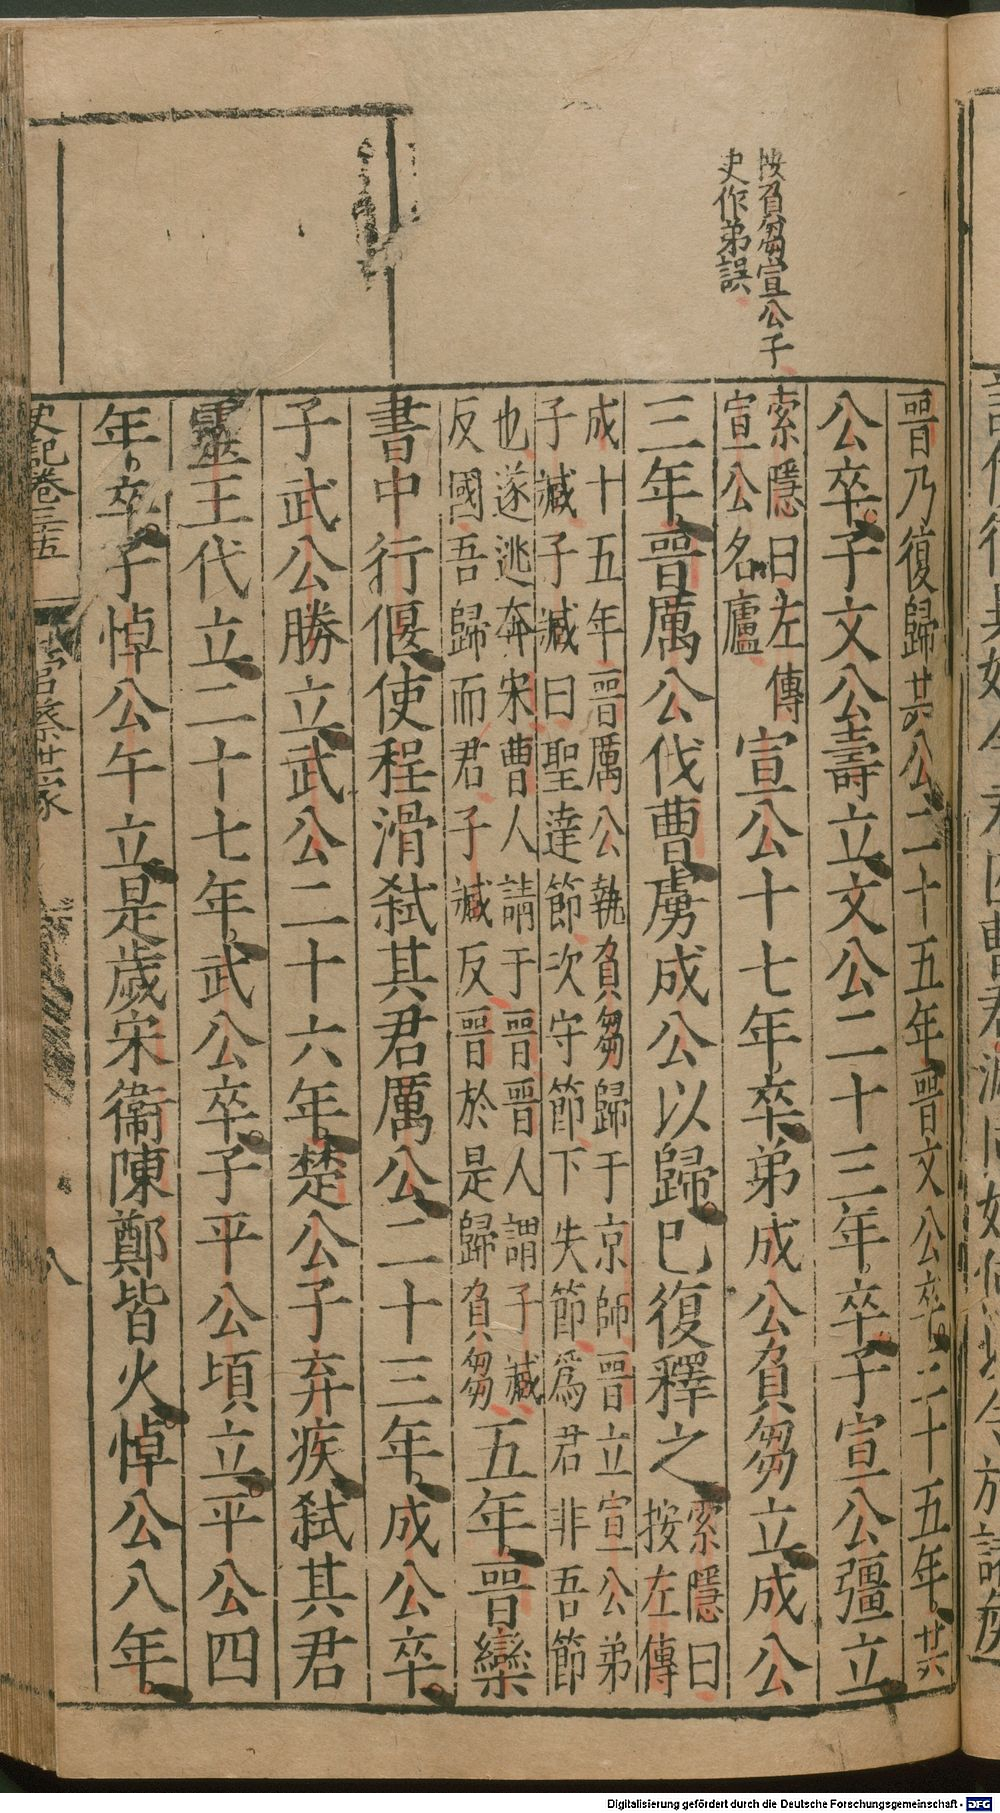 按負芻宣公子
史作弟誤
晉乃復歸共公二十五年晉文公卒三十五年共
公卒子文公壽立文公二十三年卒子宣公彊立
索隱曰左傳
宣公名廬
宣公十七年卒弟成公負芻立成公
三年晉厲公伐曹虜成公以歸已復釋之
索隱曰
按左傳
成十五年晉厲公執負芻歸于京師晉立宣公弟
子臧子臧曰聖達節次守節下失節爲君非吾節
也遂逃奔宋曹人請于晉晉人謂子臧
反國吾歸而君子臧反晉於是歸負芻
五年晉欒
書中行偃使程滑弑其君厲公二十三年成公卒
子武公勝立武公二十六年楚公子弃疾弑其君
靈王代立二十七年武公卒子平公頃立平公四
年卒子悼公午立是歲宋衞陳鄭皆火悼公八年
史記卷三十五
管蔡世家
八
Digitalisierung gefördert durch die Deutsche Forschungsgemeinschaft - DFG